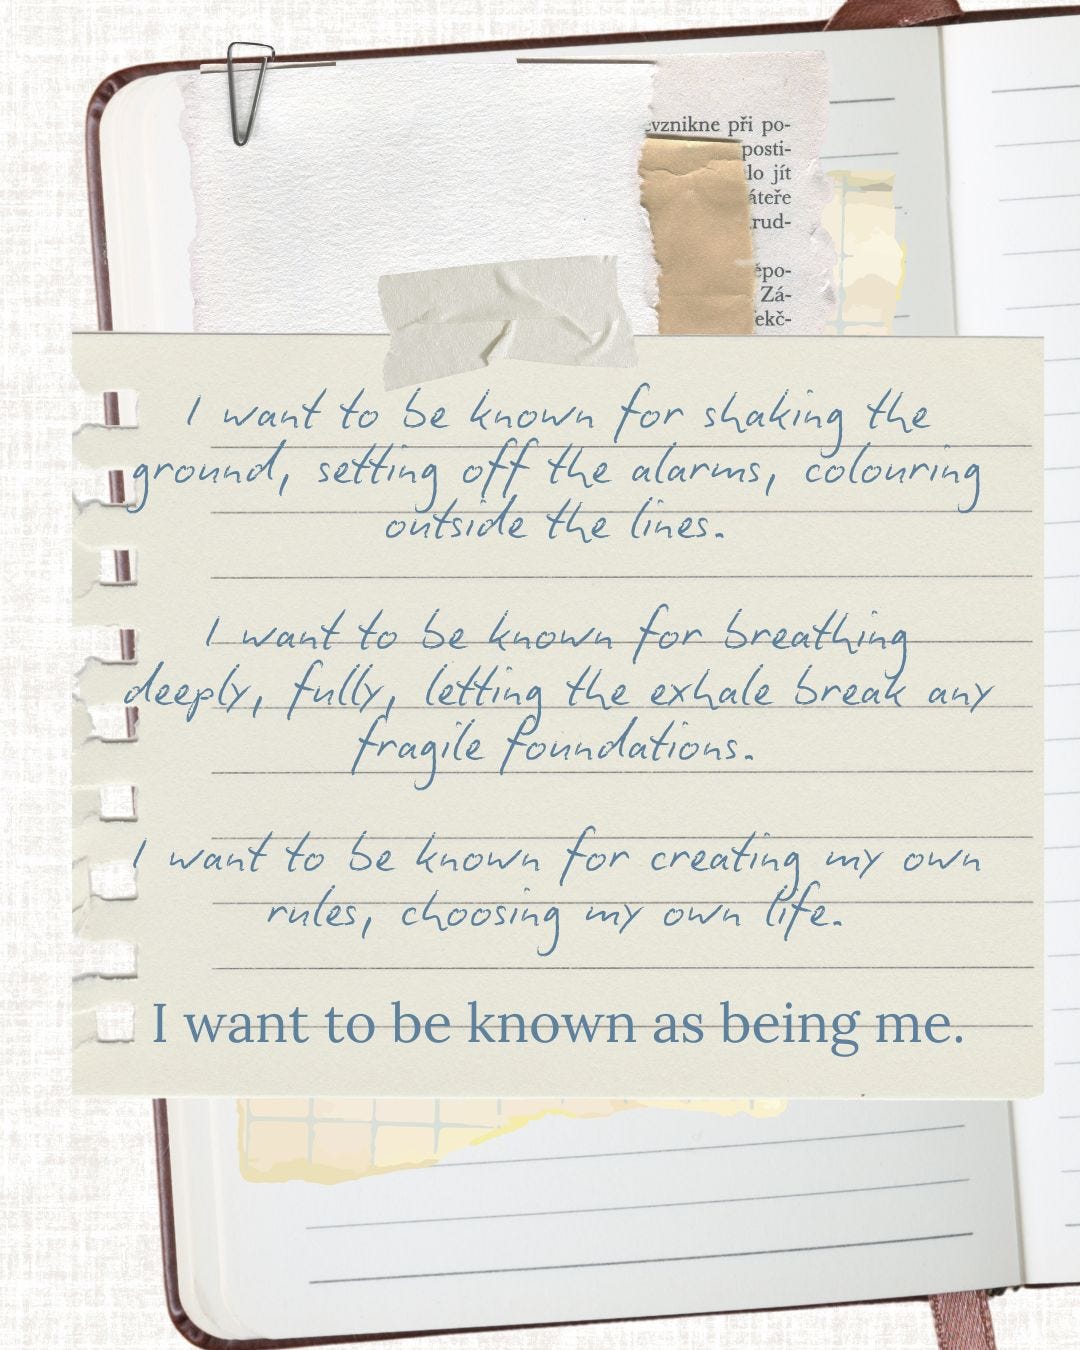 při po-
posti-
jít
I want to be known for shaking the
ground, setting off the alarms, colouring
outside the lines.
I want to be known for breathing
deeply, fully, letting the exhale break any
fragile foundations.
I want to be known for creating my own
rules, choosing my own life.
I want to be known as being me.